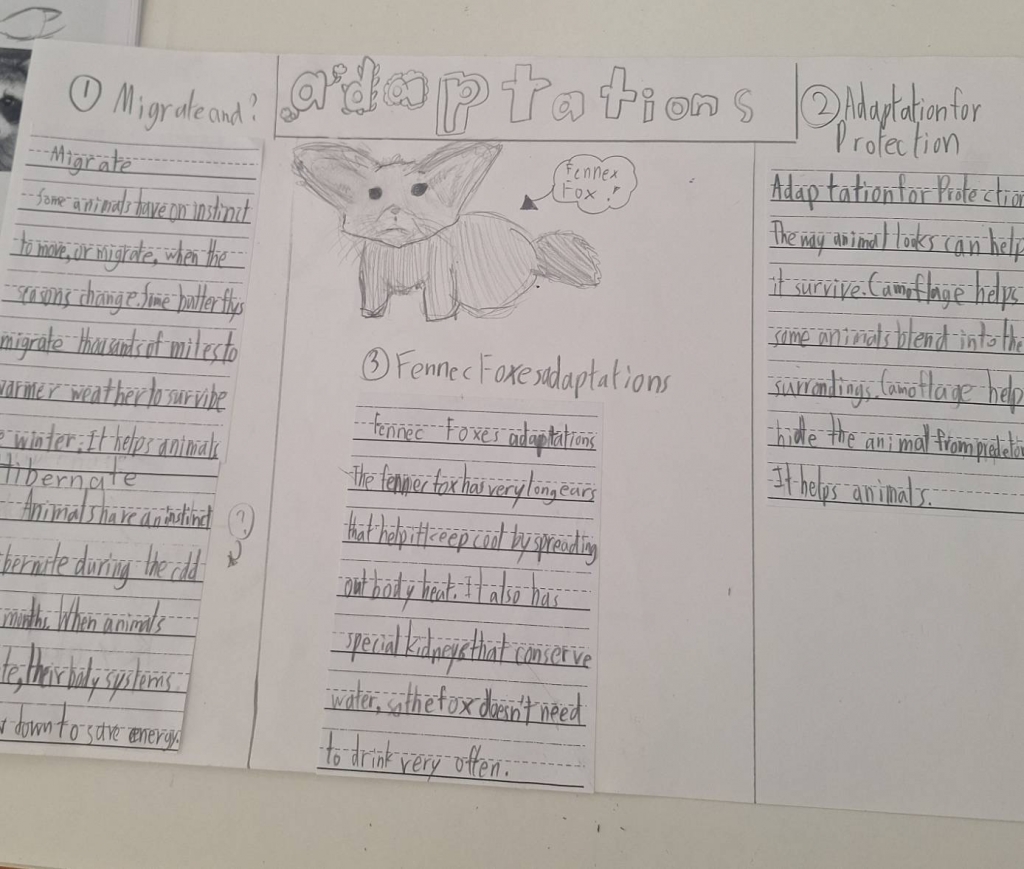 adaptations
① Migrate and?
Migrate
Some animals have an instinct
to move, or migrate, when the
seasons change. Some butterflys
migrate thousands of miles to
warmer weather to survibe
winter. It helps animals
Hibernate
Animals have an instinct
?
during the cold
months. When animals
their body systems
down to save energy.
Fennex
Fox!
③ Fennec Foxes adaptations
Fennec Foxes adaptations
The fennec fox has very long ears
that help it keep cool by spreading
out body heat. It also has
special kidneys that conserve
water, so the fox doesn't need
to drink very often.
② Adaptation for
Protection
Adaptation for Protection
The way animal looks can help
it survive. Camoflage helps
some animals blend into the
surrondings. Camoflage help
hide the animal from
It helps animals.